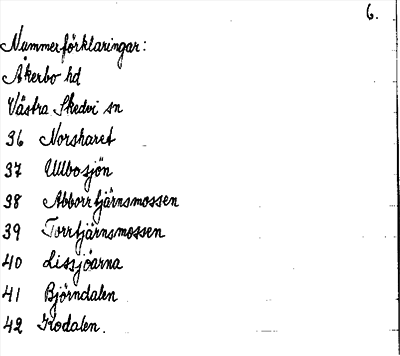 6.
Nummerförklaringar:
Åkerbo hd
Västra Skedvi sn
36 Norskaret
37 Ullbosjön
38 Abborrtjärnsmossen
39 Torrtjärnsmossen
40 Lissjöarna
41 Björndalen
42 Krodalen.